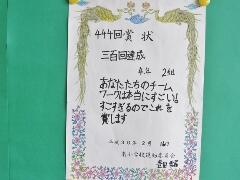 444回賞状
三百回達成
4年 2組
あなたたちのチーム
ワークは本当にすごい!
すごすぎるのでこれを
賞します
平成30年2月
南小学校運動委員会